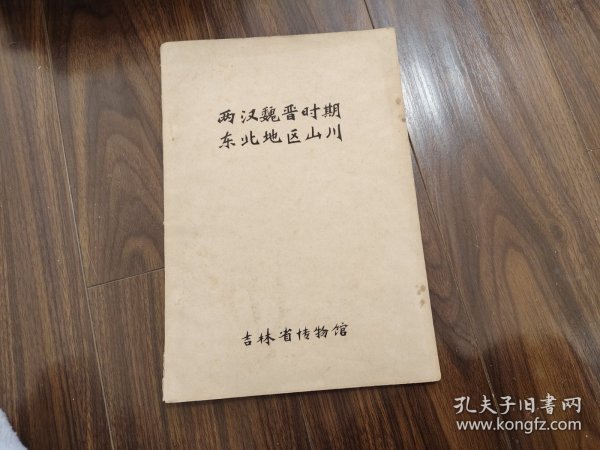 两汉魏晋时期
东北地区山川
吉林省博物馆
孔夫子旧書网
www.kongfz.com